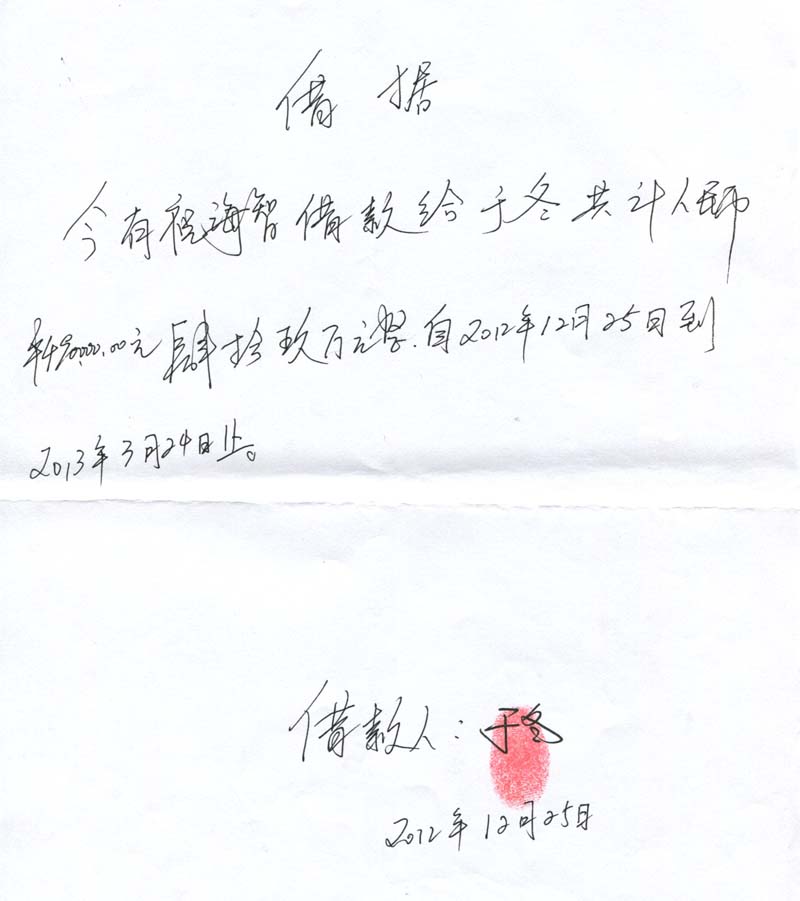 借据
今有祝海智借款给于冬共计人民币
¥490,000.00元肆拾玖万元整.自2012年12月25日到
2013年3月24日止。
借款人：于冬
2012年12月25日